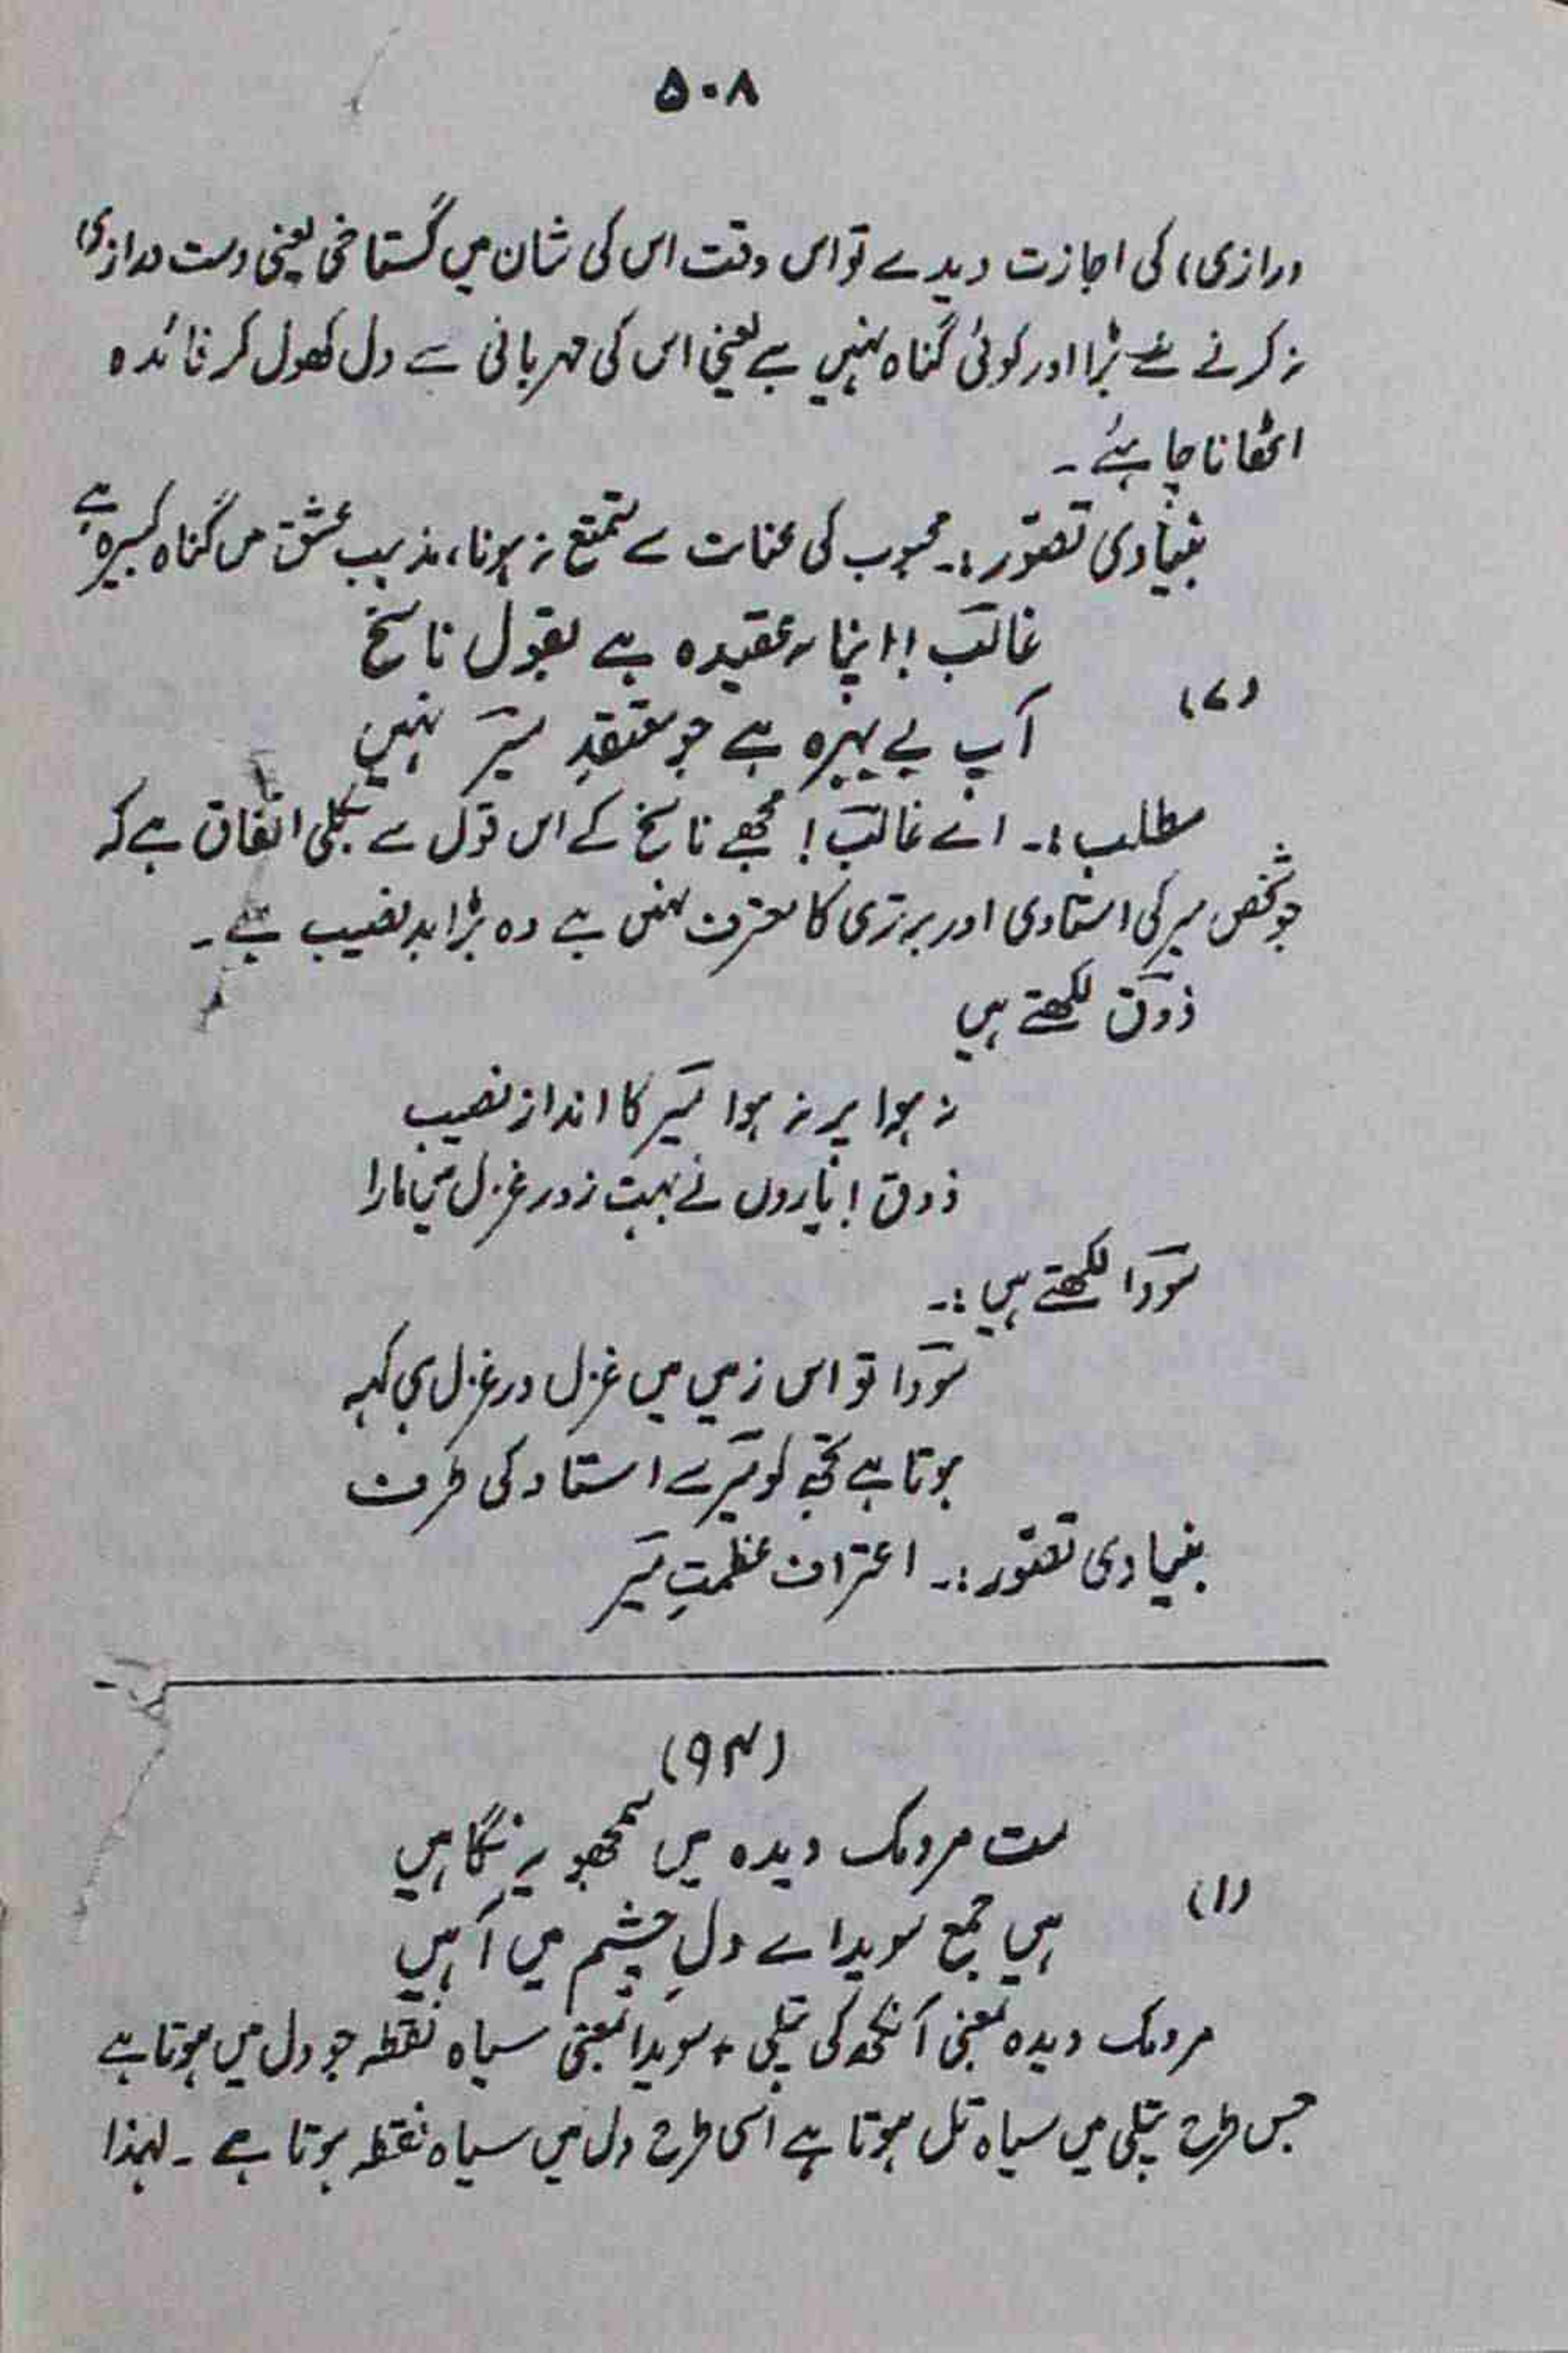 ۵۰۸
درازی) کی اجازت دیدے تو اس وقت اس کی شان میں گستاخی یعنی دست درازی
نہ کرنے سے بڑا اور کوئی گناہ نہیں ہے یعنی اس کی مہربانی سے دل کھول کر فائدہ
اٹھانا چاہئے ۔
بنیادی تصوّر :۔ محبوب کی عنایت سے متمتع نہ ہونا، مذہب عشق میں گناہ کبیرہ ہے
غالبؔ! اپنا یہ عقیدہ ہے بقول ناسخ
(۷)
آپ بے بہرہ ہے جو معتقدِ میرؔ نہیں
مطلب :۔ اے غالبؔ! مجھے ناسخ کے اس قول سے بکلی اتفاق ہے کہ
جو شخص میر کی استادی اور برتری کا معترف نہیں ہے وہ بڑا بد نصیب ہے ۔
ذوقؔ لکھتے ہیں
نہ ہوا پر نہ ہوا میرؔ کا انداز نصیب
ذوق! یاروں نے بہت زور غزل میں مارا
سوؔدا لکھتے ہیں :۔
سوؔدا تو اس زمیں میں غزل در غزل ہی کہہ
ہونا ہے تجھ کو میرؔ سے استاد کی طرف
بنیادی تصوّر :۔ اعتراف عظمتِ میرؔ
(۹۴)
مت مردمک دیدہ میں سمجھو یہ نگاہیں
(۱)
ہیں جمع سویداے دلِ چشم میں آہیں
مردمک دیدہ بمعنی آنکھ کی پتلی + سویدا بمعنی سیاہ نقطہ جو دل میں ہوتا ہے
جس طرح پتلی میں سیاہ تل ہوتا ہے اسی طرح دل میں سیاہ نقطہ ہوتا ہے ۔ لہٰذا